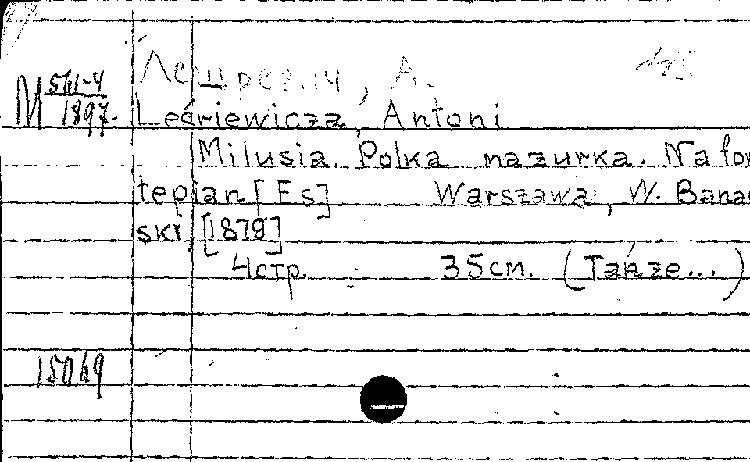 A.
M 5
1897.
Leśniewicza, Antoni
Milusia. Polka mazurka. Na for
tepian [Es] Warszawa, W. Bana
ski, [1879]
4 стр. 35 см. (Tańze...)
15069